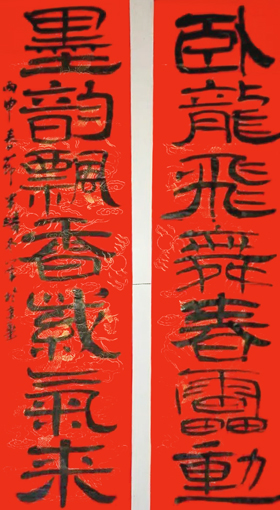 臥龍飛舞春雷動
墨韵飄香歲氣来
丙申春節